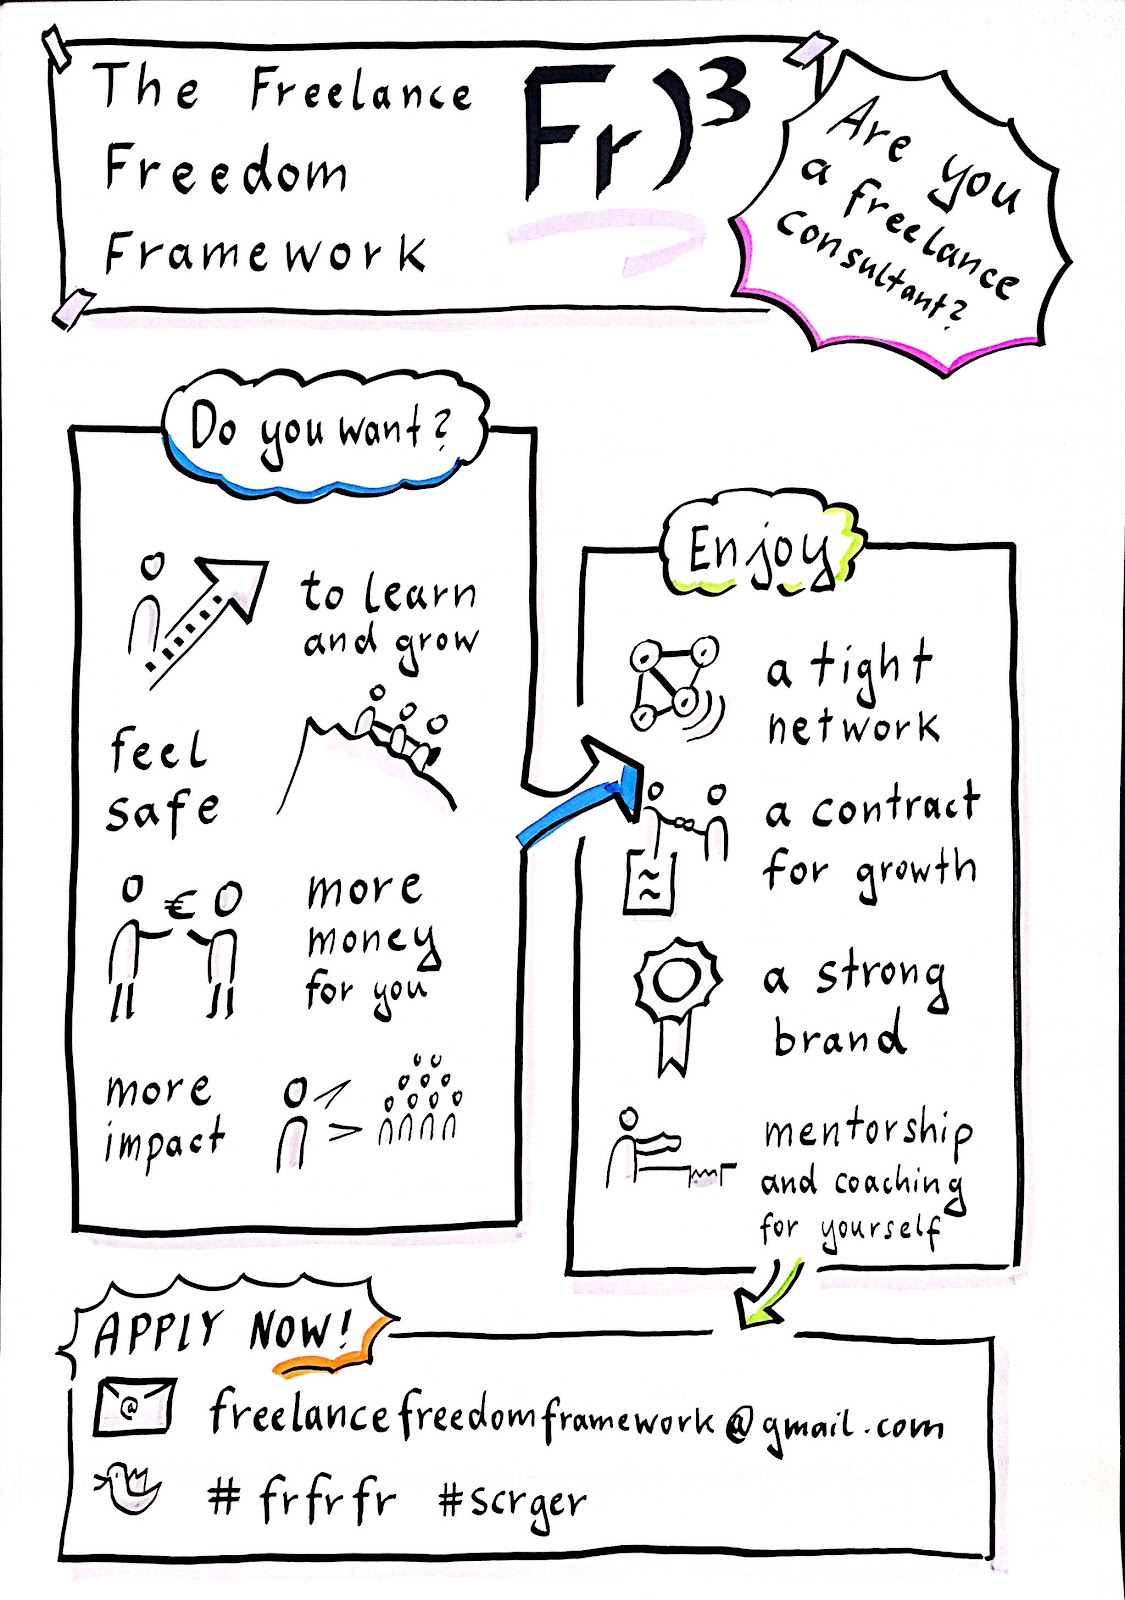 The Freelance
Freedom
Framework
Fr)³
Are you
a freelance
consultant?
Do you want?
to learn
and grow
feel
safe
€
more
money
for you
more
impact
Enjoy
a tight
network
a contract
for growth
a strong
brand
mentorship
and coaching
for yourself
APPLY NOW!
@
freelancefreedomframework@gmail.com
# frfrfr #scrger